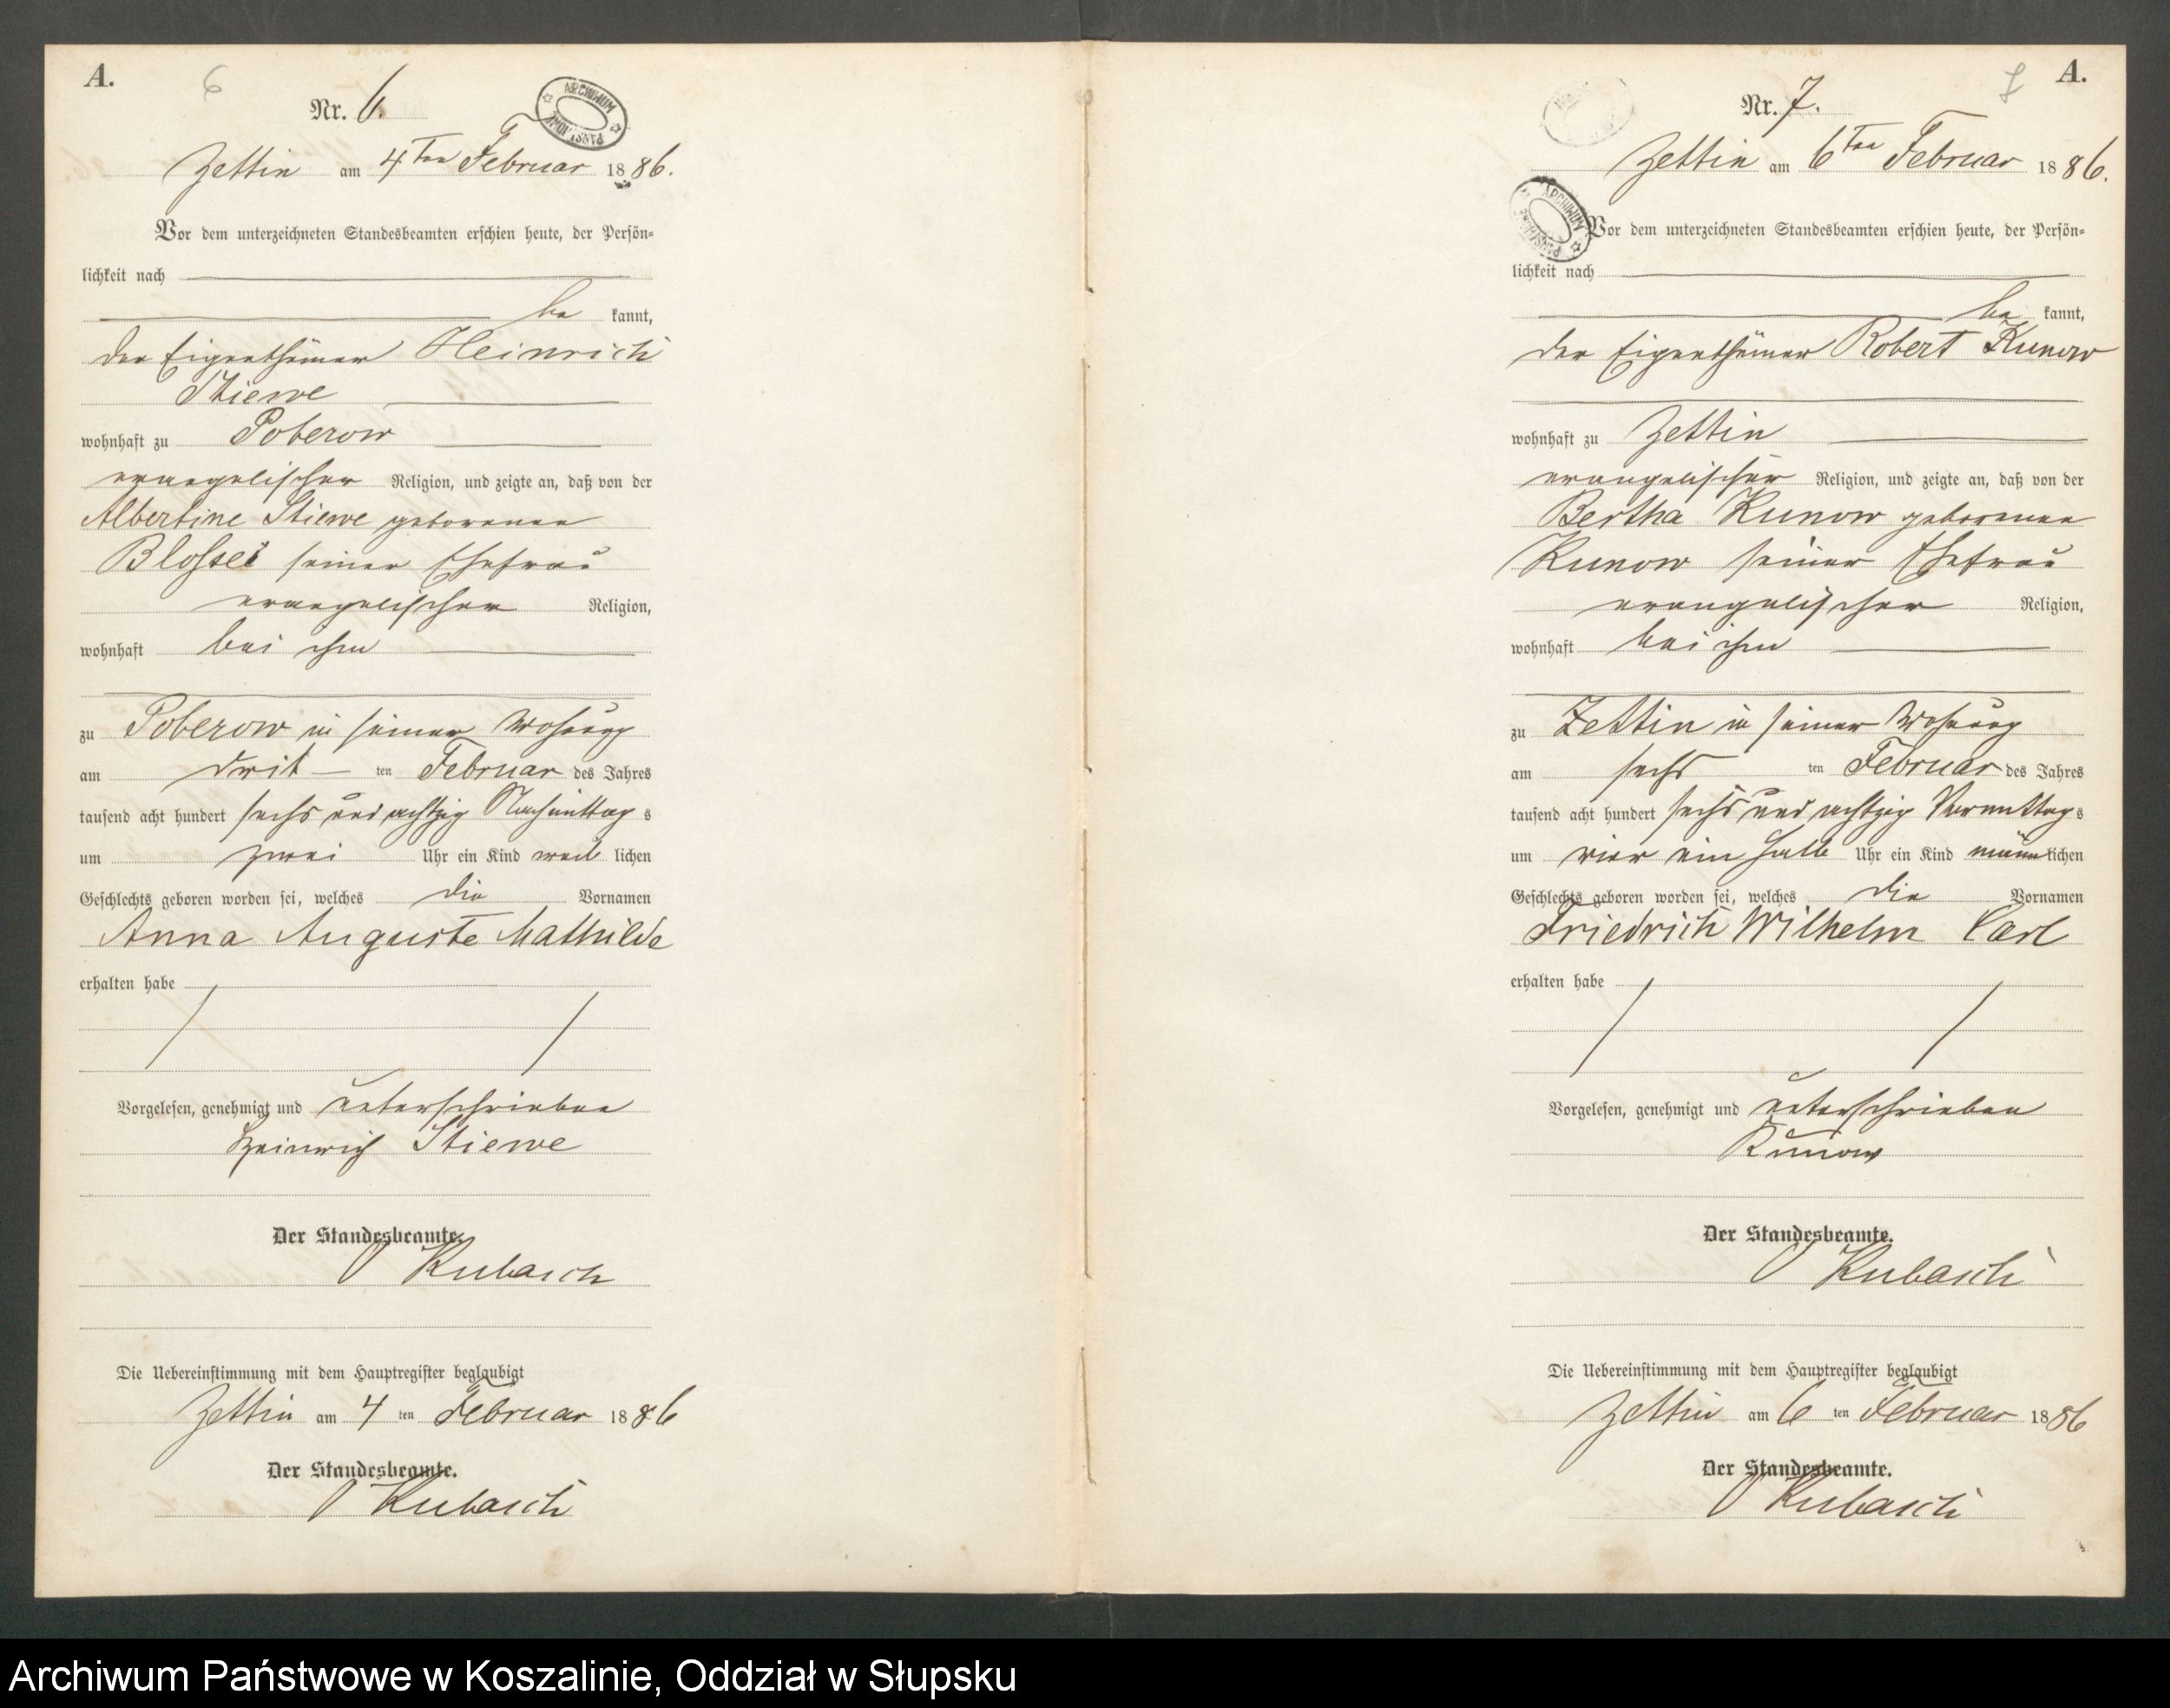 A.
6
Nr. 6.
ARCHIWUM PAŃSTWOWE
Zettin am 4ten Februar 1886.
Vor dem unterzeichneten Standesbeamten erschien heute, der Persön-
lichkeit nach
be kannt,
der Eigenthümer Heinrich
Stiewe
wohnhaft zu Poberow
evangelischer Religion, und zeigte an, daß von der
Albertine Stiewe geborenen
Blossei seiner Ehefrau
evangelischer Religion,
wohnhaft bei ihm
zu Poberow in seiner Wohnung
am dritt ten Februar des Jahres
tausend acht hundert sechs und achtzig Nachmittag s
um zwei Uhr ein Kind weib lichen
Geschlechts geboren worden sei, welches die Vornamen
Anna Auguste Mathilde
erhalten habe
Vorgelesen, genehmigt und unterschrieben
Heinrich Stiewe
Der Standesbeamte.
Kubasch
Die Uebereinstimmung mit dem Hauptregister beglaubigt
Zettin am 4 ten Februar 1886
Der Standesbeamte.
Kubasch
7
A.
Nr. 7.
Zettin am 6ten Februar 1886.
ARCHIWUM PAŃSTWOWE
Vor dem unterzeichneten Standesbeamten erschien heute, der Persön-
lichkeit nach
be kannt,
der Eigenthümer Robert Kunow
wohnhaft zu Zettin
evangelischer Religion, und zeigte an, daß von der
Bertha Kunow geborenen
Kunow seiner Ehefrau
evangelischer Religion,
wohnhaft bei ihm
zu Zettin in seiner Wohnung
am sechs ten Februar des Jahres
tausend acht hundert sechs und achtzig Vormittag s
um vier ein halb Uhr ein Kind männ lichen
Geschlechts geboren worden sei, welches die Vornamen
Friedrich Wilhelm Carl
erhalten habe
Vorgelesen, genehmigt und unterschrieben
Kunow
Der Standesbeamte.
Kubasch
Die Uebereinstimmung mit dem Hauptregister beglaubigt
Zettin am 6 ten Februar 1886
Der Standesbeamte.
Kubasch
Archiwum Państwowe w Koszalinie, Oddział w Słupsku